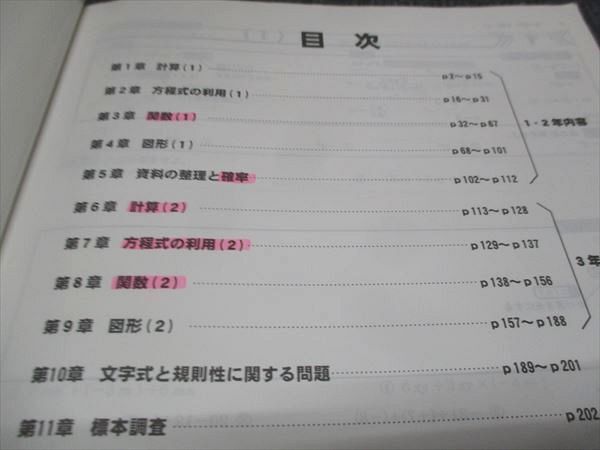 目 次
第1章 計算(1) p2〜p15
第2章 方程式の利用(1) p16〜p31
第3章 関数(1) p32〜p67
第4章 図形(1) p68〜p101
第5章 資料の整理と確率 p102〜p112
1・2年内容
第6章 計算(2) p113〜p128
第7章 方程式の利用(2) p129〜p137
第8章 関数(2) p138〜p156
第9章 図形(2) p157〜p188
3年
第10章 文字式と規則性に関する問題 p189〜p201
第11章 標本調査 p202